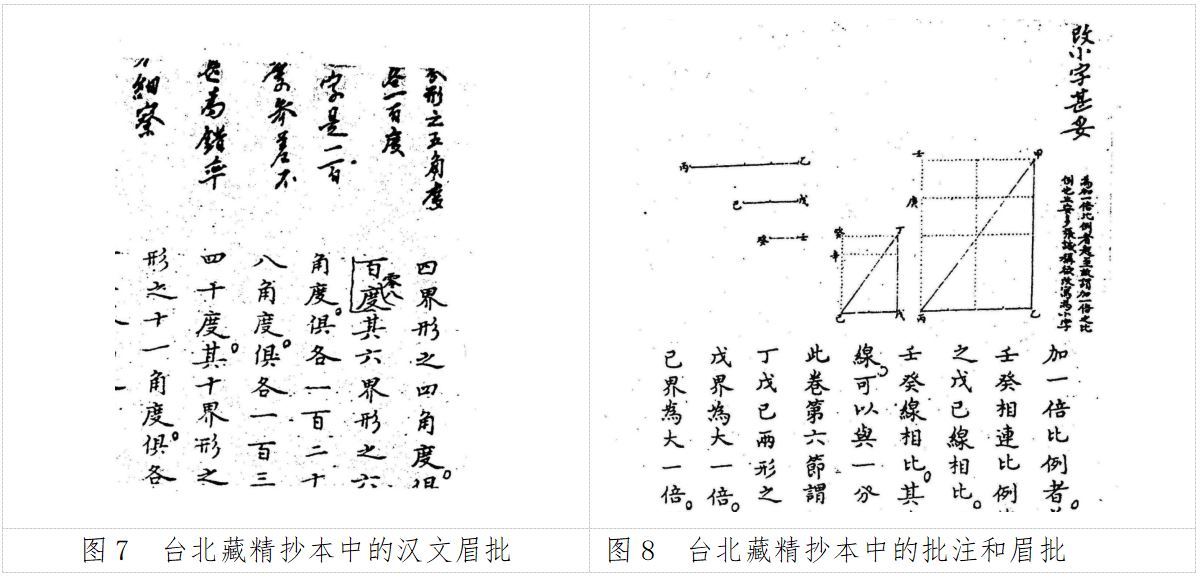 分形之五角度
各一百度
字是一百
零參差不
尚錯率
細察
四界形之四角度俱
百度其六界形之六
零八
角度俱各一百二十
八角度俱各一百三
四十度其十界形之
形之十一角度俱各
改小字甚妥
為加一倍比例者起至故謂加一倍之比
例也
改寫為小字
甲
壬
庚
乙
丙
丙
乙
己
戊
癸
壬
癸
丁
辛
己
戊
加一倍比例者
壬癸相連比例
之戊己線相比
壬癸線相比其
線可以與一分
此卷第六節謂
丁戊己兩形之
戊界為大一倍
己界為大一倍
图7 台北藏精抄本中的汉文眉批
图8 台北藏精抄本中的批注和眉批